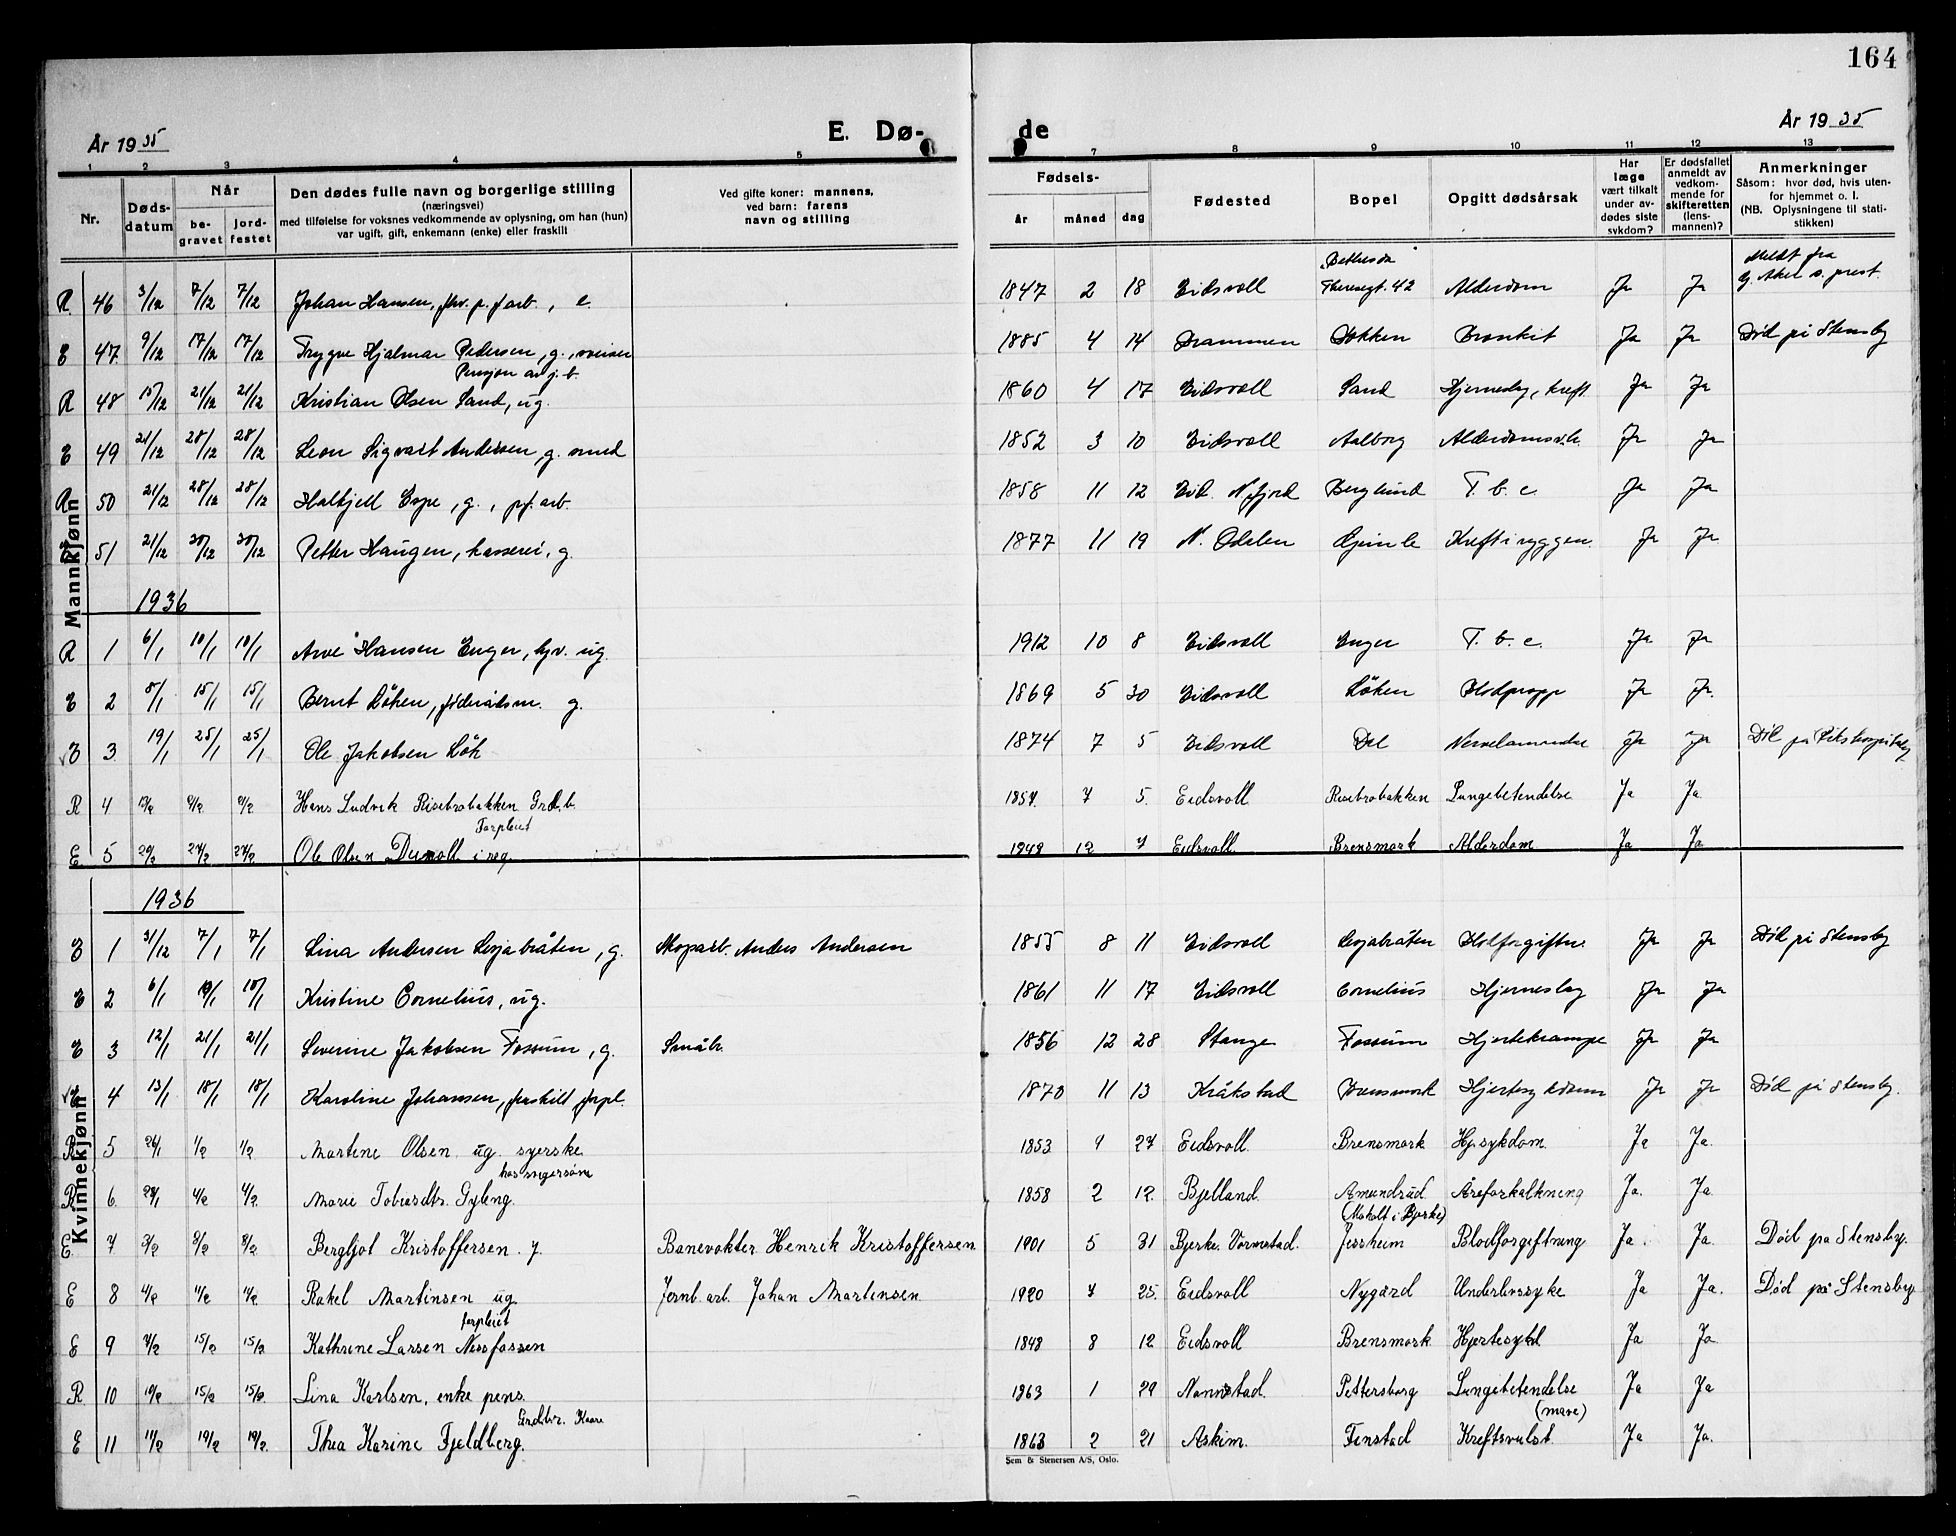 164
År 1935
E. Dø-
de
År 1935
1 2 3 4 5 7 8 9 10 11 12 13
Nr.
Døds-
datum
Når
be-
gravet
jord-
festet
Den dødes fulle navn og borgerlige stilling
(næringsvei)
med tilføielse for voksnes vedkommende av oplysning, om han (hun)
var ugift, gift, enkemann (enke) eller fraskilt
Ved gifte koner: mannens,
ved barn: farens
navn og stilling
Fødsels-
år måned dag
Fødested
Bopel
Opgitt dødsårsak
Har
læge
vært tilkalt
under av-
dødes siste
sykdom?
Er dødsfallet
anmeldt av
vedkom-
mende for
skifteretten
(lens-
mannen)?
Anmerkninger
Såsom: hvor død, hvis uten-
for hjemmet o. l.
(NB. Oplysningene til stati-
stikken)
Mannkjønn
R 46 3/12 7/12 7/12 Johan Hansen, fhv. p. f arb., e. 1847 2 18 Eidsvoll Theresgt. 42 Alderdom Ja Ja Meldt fra G. Aker s. prest.
E 47 9/12 17/12 17/12 Trygve Hjalmar Pedersen, g., sveiser 1885 4 14 Drammen Bakken Bronkit Ja Ja Død på Stensby
Pensjon av j.b.
R 48 15/12 21/12 21/12 Kristian Olsen Sand, ug. 1860 4 17 Eidsvoll Sand Hjerneslag, kreft. Ja Ja
E 49 21/12 28/12 28/12 Leon Sigvart Andersen, g. smed 1852 3 10 Eidsvoll Aalborg Alderdomsv. Ja Ja
R 50 21/12 28/12 28/12 Halkjell Espe, g., pf. arb. 1858 11 12 Eid. N.fjord Berglund T. b. c. Ja Ja
51 21/12 30/12 30/12 Petter Haugen, kasserer, g. 1877 11 19 N. Odalen Gimle Kreft i ryggen. Ja Ja
1936
R 1 6/1 10/1 10/1 Arve Hansen Enger, ug. 1912 10 8 Eidsvoll Enger T. b. c. Ja Ja
E 2 8/1 15/1 15/1 Bernt Løken, føderådsm. g. 1869 5 30 Eidsvoll Løken Blodpropp Ja Ja.
E 3 19/1 25/1 25/1 Ole Jakobsen Løk 1874 7 5 Eidsvoll Dal Nervelammelse Ja Ja Død på Rikshospitalet
R 4 9/2 9/2 Hans Ludvik Risebrobakken Grdb. 1857. 7 5. Eidsvoll Risebrobakken Lungebetendelse Ja Ja
Forpleiet
E 5 20/2 27/2 27/2 Ole Olsen Dunoll 1849 12 7 Eidsvoll. Brensmork Alderdom Ja Ja
1936
Kvinnekjønn
E 1 31/12 7/1 7/1 Lina Andersen Lesjabråten, g. Skoparb. Anders Andersen 1855 8 11 Eidsvoll Lesjabråten Ja Ja Død på Stensby
E 2 6/1 10/1 10/1 Kristine Cornelius, ug. 1861 11 17 Eidsvoll Cornelius Hjerneslag Ja Ja
E 3 12/1 21/1 21/1 Severine Jakobsen Fossum, g. Småbr. 1856 12 28 Stange Fossum Hjertekrampe Ja Ja
4 13/1 18/1 18/1 Karoline Johansen, fraskilt, forpl. 1870 11 13 Kråkstad Brensmork Ja Ja Død på Stensby.
R 5 26/1 1/2 1/2 Martine Olsen ug. syerske 1853 4 27 Eidsvoll. Brensmork Hj.sykdom. Ja Ja.
hos svigersønn
R 6. 28/1 4/2 4/2 Marie Tobiasdtr. Gyleng. 1858 2 12. Bjelland. Amundrud (Makalt i Bjerke) Åreforkalkning Ja. Ja
E. 7 3/2 8/2 8/2 Bergljot Kristoffersen. g. Banevokter Henrik Kristoffersen 1901 5 31 Bjerke. Vormstad. Jessheim Blodforgiftning Ja. Ja. Død på Stensby.
E 8 4/2 11/2 11/2 Rakel Martinsen ug. Jernb. arb. Johan Martinsen 1920 7 25. Eidsvoll Nygard Underlivssyke Ja Ja. Død på Stensby.
forpleiet
E 9 7/2 15/2 15/2 Kathrine Larsen Nessfossen 1848 8 12 Eidsvoll Brensmork Hjertesykd. Ja Ja
R 10 10/2 15/2 15/2 Lina Karlsen, enke pens. 1863 1 29 Nannestad. Pettersborg Lungebetendelse Ja Ja
Grdbr. Kaare (mave)
E 11 11/2 19/2 19/2 Thea Karine Fjeldberg. 1863 2 21 Askim. Finstad Kreftsvulst. Ja Ja.
Sem & Stenersen A/S, Oslo.